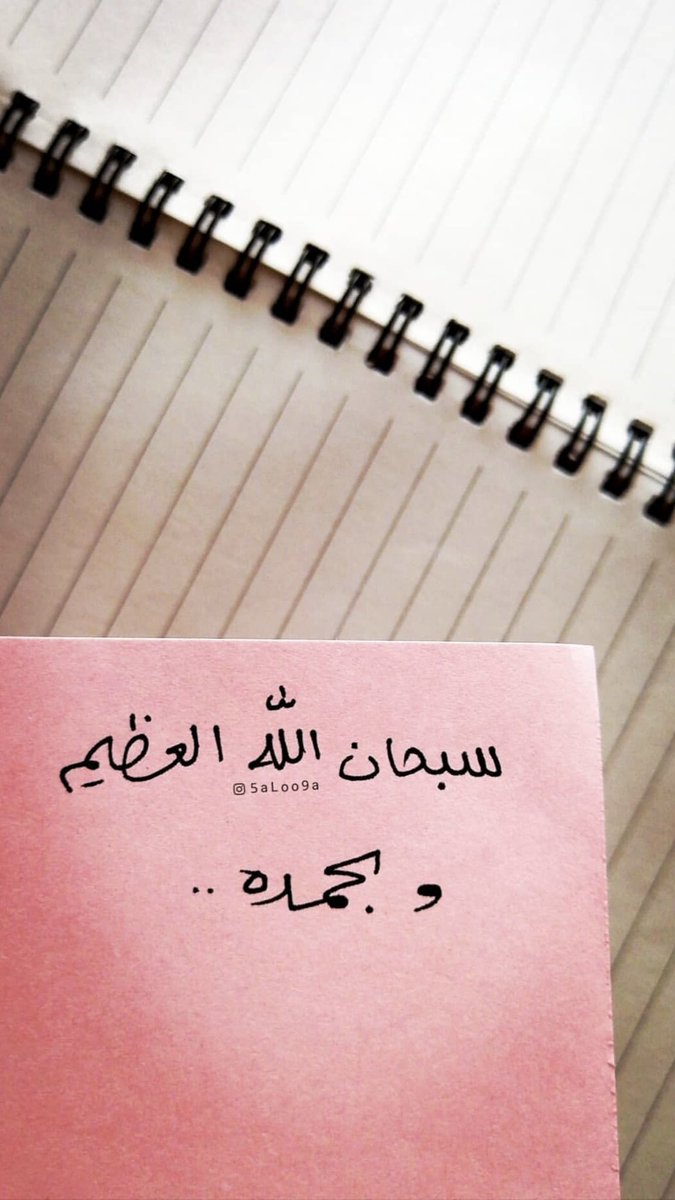 سبحان اللّٰه العظيم
5aLoo9a
و بحمده ..